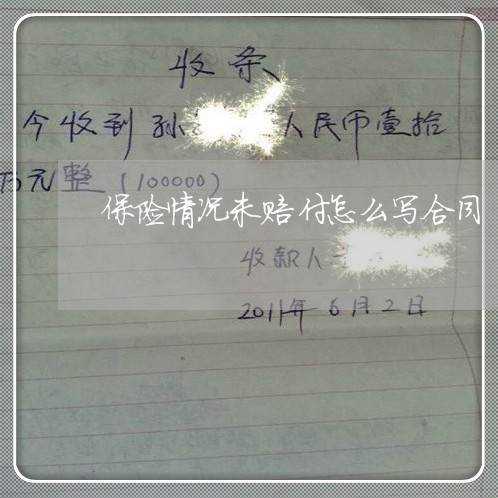 收条
今收到孙 人民币壹拾
万元整（100000）
保险情况未赔付怎么写合同
收款人
2011年6月2日